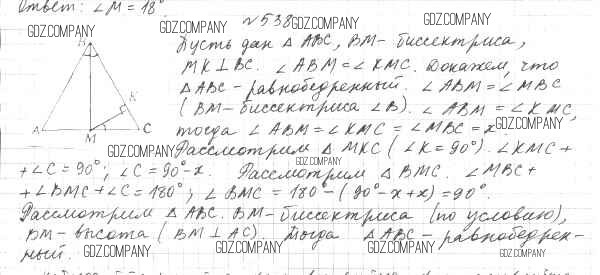 Ответ: ∠M = 18°
GDZ.COMPANY GDZ.COMPANY GDZ.COMPANY
№538
B
Пусть дан △ ABC, BM - биссектриса,
MK ⊥ BC. ∠ABM = ∠KMC. Докажем, что
GDZ.COMPANY GDZ.COMPANY
△ABC - равнобедренный. ∠ABM = ∠MBC
K
(BM - биссектриса ∠B). ∠ABM = ∠KMC,
A M C
тогда ∠ABM = ∠KMC = ∠MBC = x
GDZ.COMPANY GDZ.COMPANY GDZ.COMPANY
Рассмотрим △ MKC (∠K = 90°). ∠KMC +
GDZ.COMPANY
+ ∠C = 90°; ∠C = 90° - x. Рассмотрим △ BMC. ∠MBC +
+ ∠BMC + ∠C = 180°; ∠BMC = 180° - (90° - x + x) = 90°.
GDZ.COMPANY
Рассмотрим △ ABC. BM - биссектриса (по условию),
BM - высота (BM ⊥ AC). Тогда △ABC - равнобедрен-
ный.
GDZ.COMPANY GDZ.COMPANY GDZ.COMPANY GDZ.COMPANY